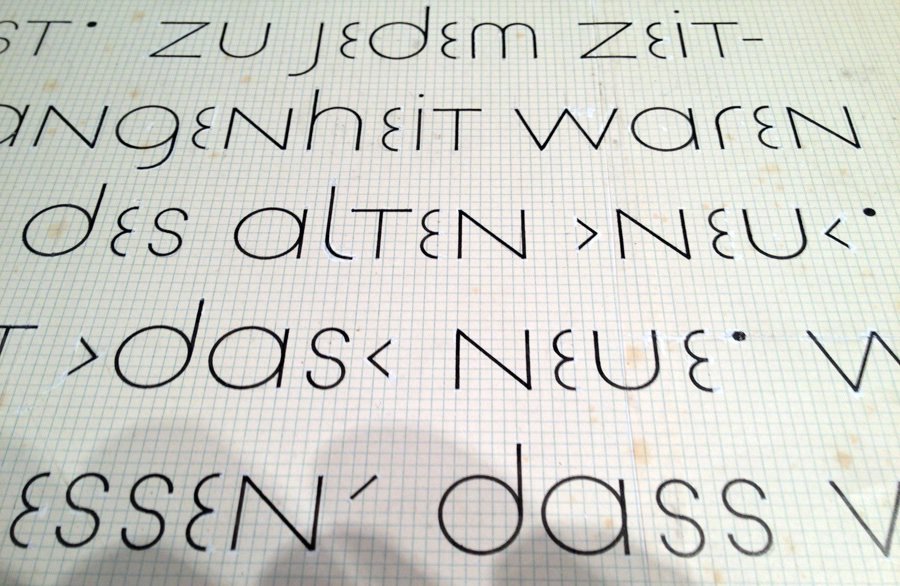 ST· ZU jEdEm ZEiT-
ANgENhEiT WArEN
dES alTEN >NEU<·
T >das< NEUE· W
ESSEN´ dass